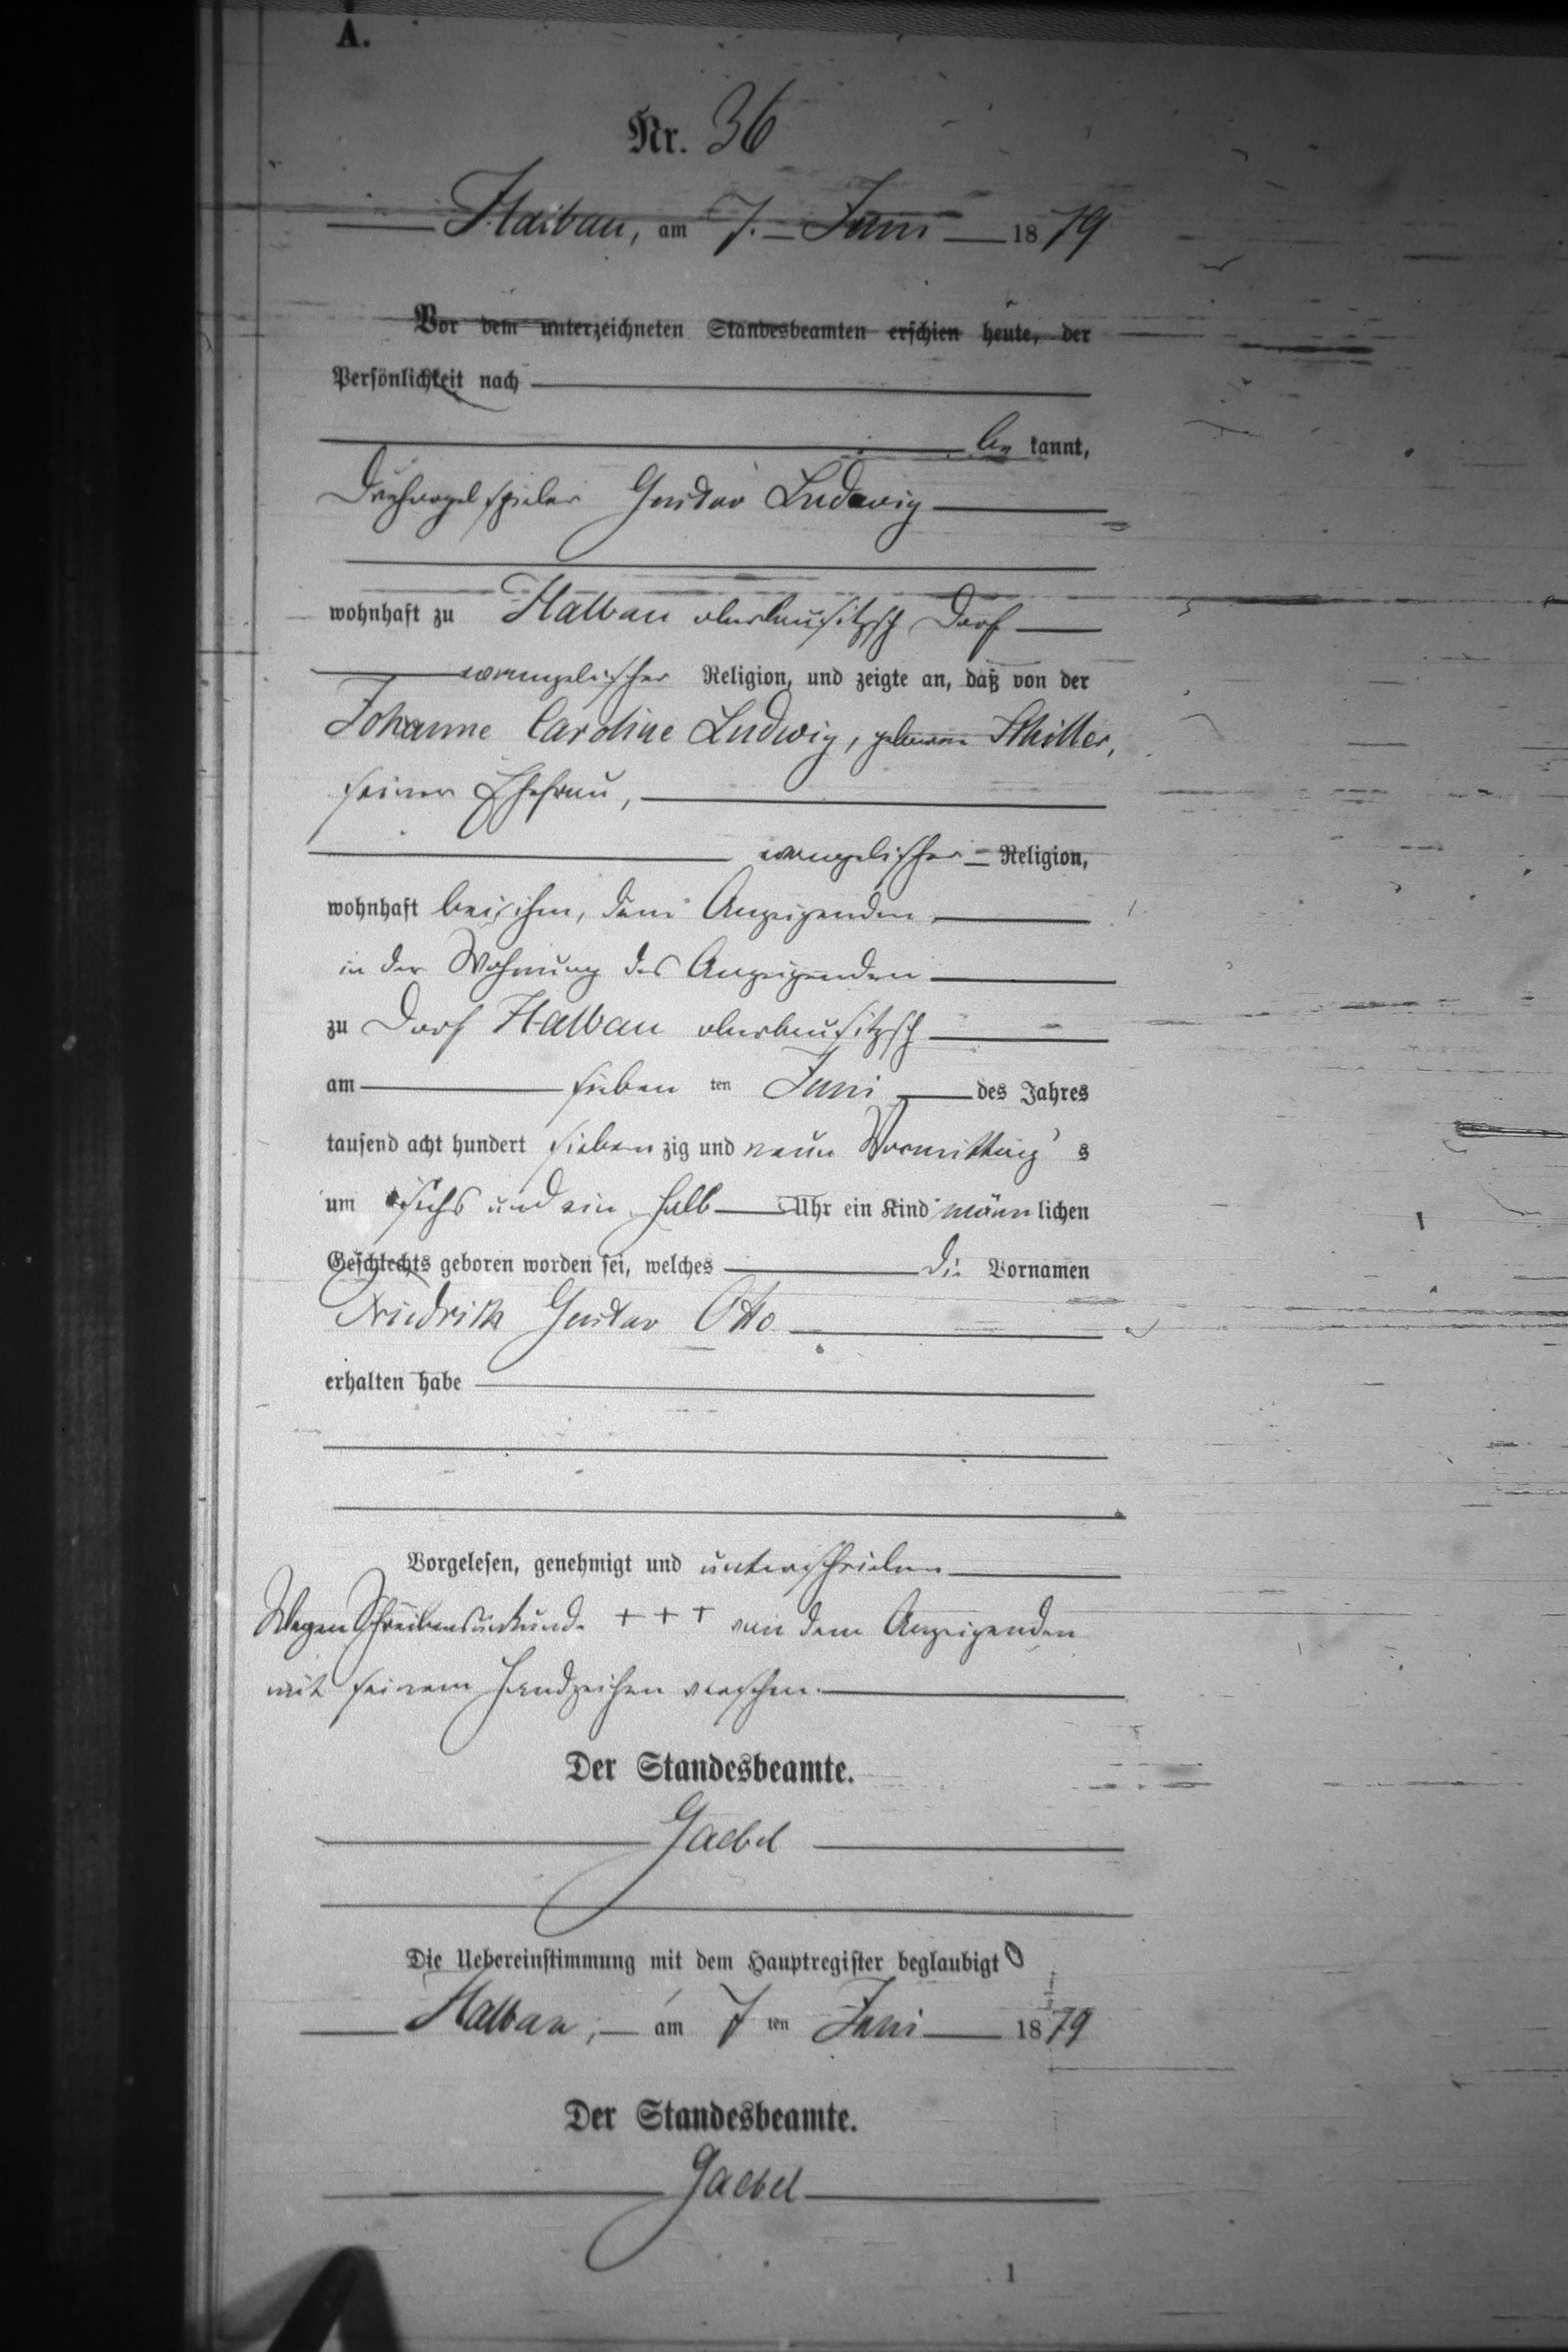 A.
Nr. 36
Halbau, am 7. Juni 1879
Vor dem unterzeichneten Standesbeamten erschien heute, der
Persönlichkeit nach
be kannt,
Drehorgelspieler Gustav Ludwig
wohnhaft zu Halbau oberlausitzsch Dorf
evangelischer Religion, und zeigte an, daß von der
Johanne Caroline Ludwig, geborene Schiller,
seiner Ehefrau,
evangelischer Religion,
wohnhaft bei ihm, dem Anzeigenden
in der Wohnung des Anzeigenden
zu Dorf Halbau oberlausitzsch
am sieben ten Juni des Jahres
tausend acht hundert sieben zig und neun Vormittag s
um sechs und ein halb Uhr ein Kind männ lichen
Geschlechts geboren worden sei, welches die Vornamen
Friedrich Gustav Otto
erhalten habe
Vorgelesen, genehmigt und unterschrieben
Wegen Schreibensunkunde + + + von dem Anzeigenden
mit seinem Handzeichen versehen.
Der Standesbeamte.
Gaebel
Die Uebereinstimmung mit dem Hauptregister beglaubigt
Halbau, am 7 ten Juni 1879
Der Standesbeamte.
Gaebel
1